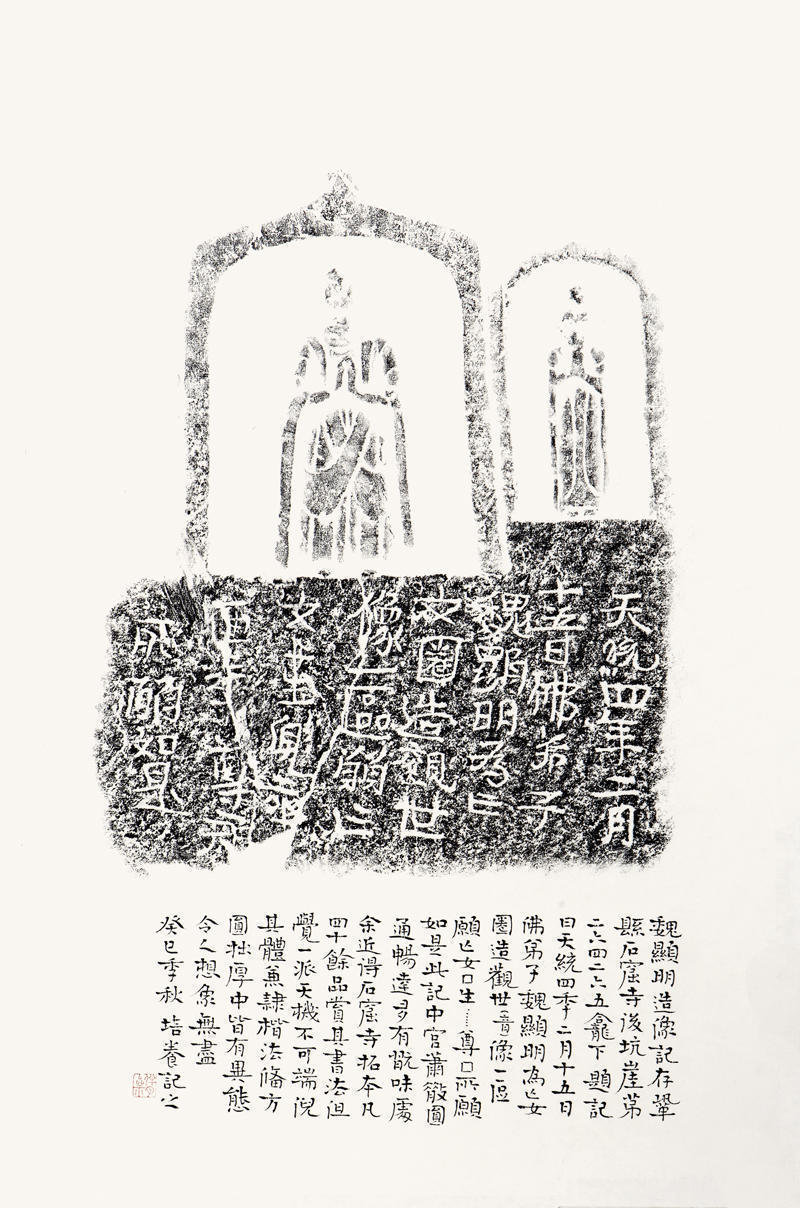 天統四年二月
十五日佛弟子
魏顯明為亡
女圈造觀世
像一區願亡
女
願如是
魏顯明造像記存鞏
縣石窟寺後坑崖第
二六四二六五龕下題記
曰天統四季二月十五日
佛弟子魏顯明為亡女
圈造觀世(音)像一區
願亡女口生……尊口所願
如是此記中宮蕭散圓
通暢達多有翫味處
余近得石窟寺拓本凡
四十餘品賞其書法但
覺一派天機不可端倪
其體兼隸楷法備方
圓拙厚中皆有異態
令人想象無盡
癸巳季秋 培養記之